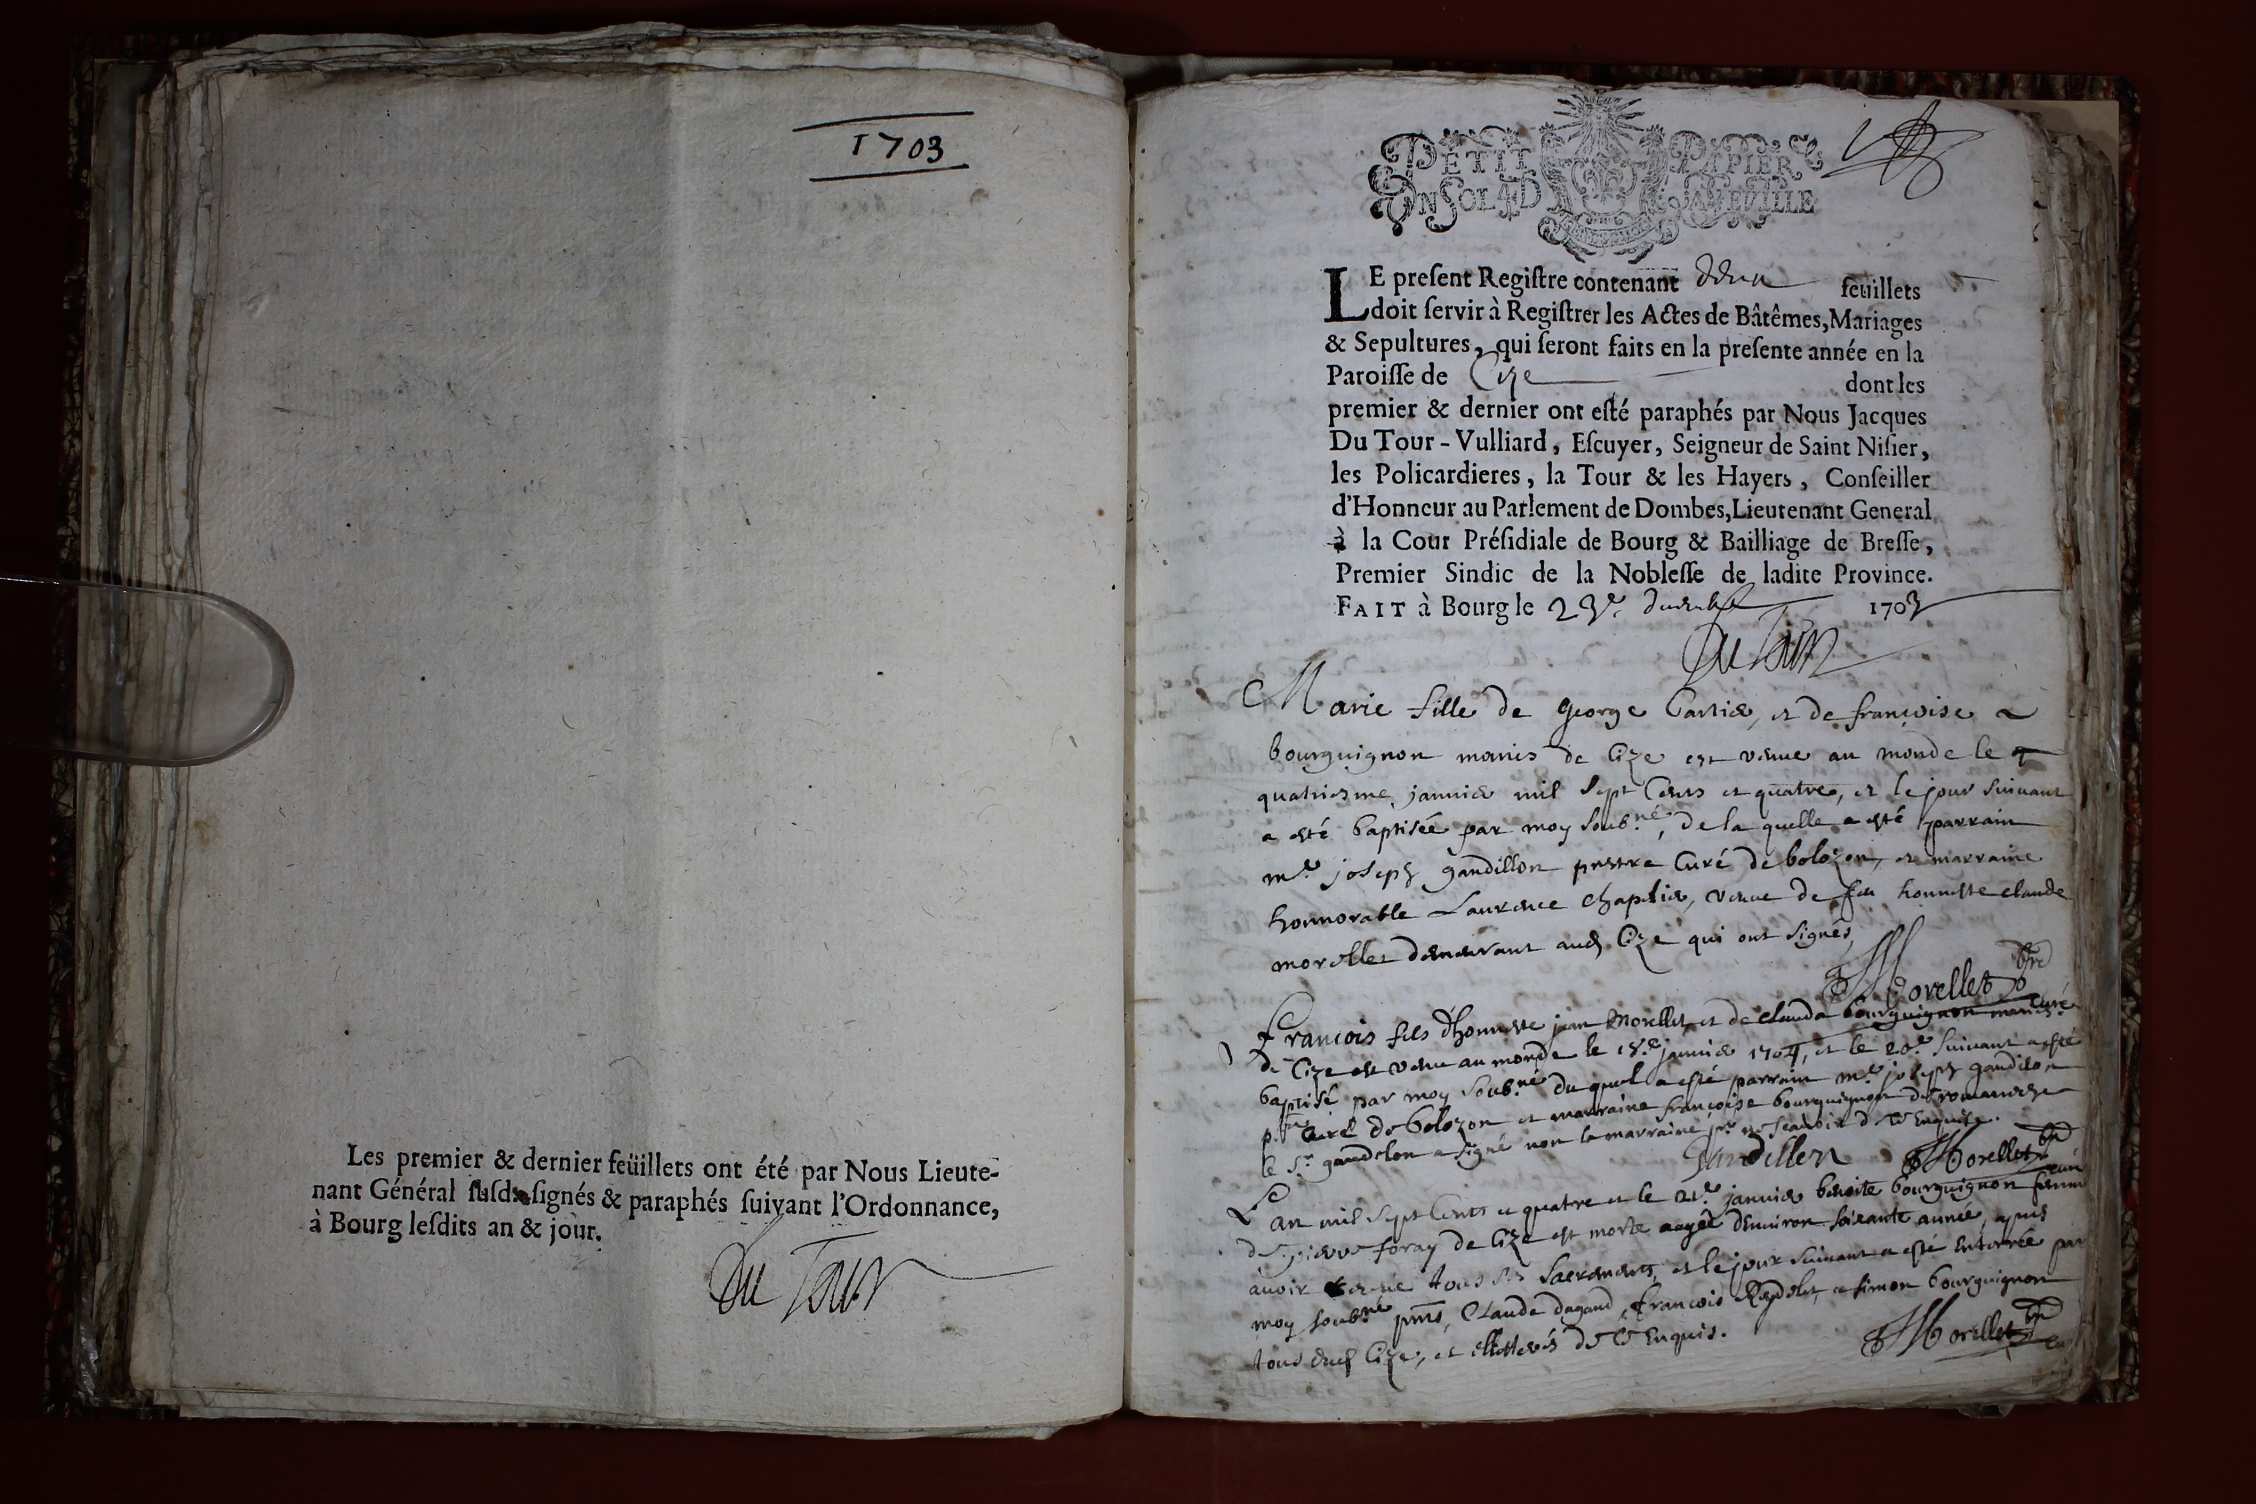 1703
Les premier & dernier feüillets ont été par Nous Lieute-
nant Général susd. signés & paraphés suivant l'Ordonnance,
à Bourg lesdits an & jour.
Du Tour
PETIT PAPIER
UN SOL 4 D LA FEVILLE
LE present Registre contenant deux feüillets
doit servir à Registrer les Actes de Bâtêmes, Mariages
& Sepultures, qui seront faits en la presente année en la
Paroisse de Cize dont les
premier & dernier ont esté paraphés par Nous Jacques
Du Tour - Vulliard, Escuyer, Seigneur de Saint Nisier,
les Policardieres, la Tour & les Hayers, Conseiller
d'Honneur au Parlement de Dombes, Lieutenant General
à la Cour Présidiale de Bourg & Bailliage de Bresse,
Premier Sindic de la Noblesse de ladite Province.
FAIT à Bourg le 23e 1703
Du Tour
Marie fille de george Cartier, et de françoise
bourguignon mariés de Cize est venue au monde le
quatriesme janvier mil sept Cents et quatre, et le jour suivant
a esté baptisée par moy soub.né, de la quelle a esté parrain
mre joseph gandillon prestre Curé de bolozon, et marraine
honnorable Laurence Chapelier, veuve de feu honneste claude
morellet demeurant aud Cize qui ont signés
Morellet pbre curé
François fils d'honneste jean Morellet et de clauda bourguignon mariés
de Cize est venu au monde le 18.e janvier 1704, et le 20.e suivant a esté
baptisé par moy soub.né du quel a esté parrain mre joseph gandilon
p.tre Curé de bolozon et marraine françoise bourguignon de romaneche
le Sr. gandelon a signé non la marraine pr. ne scavoir de ce Enquise.
Gandillon Morellet curé
L'an mil sept Cents et quatre et le 21.e janvier benoite bourguignon femme
de pierre foray de Cize est morte aagée d'environ soixante année, apres
avoir receue tous ses sacrements, et le jour suivant a esté enterrée par
moy soub.né pnts, Claude dagand, François et simon bourguignon
tous dud Cize, et illetterés de ce Enquis.
Morellet